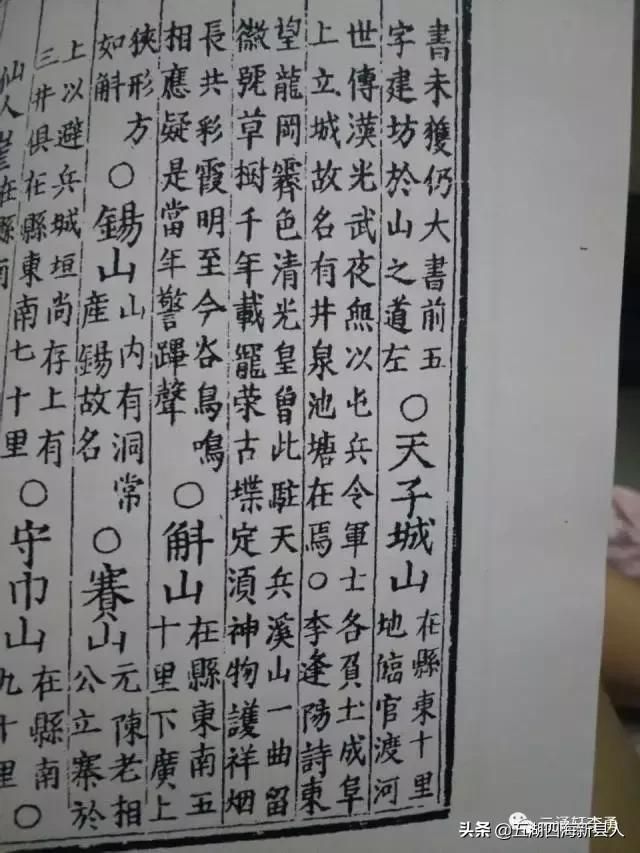 書未獲仍大書前五
字建坊於山之道左
○天子城山
在縣東十里
地臨官渡河
世傳漢光武夜無以屯兵令軍士各負土成阜
上立城故名有井泉池塘在焉○李逢陽詩東
望龍岡霽色清光皇曾此駐天兵溪山一曲留
徽號草樹千年載寵荣古堞定須神物護祥烟
長共彩霞明至今谷鳥鳴
相應疑是當年警蹕聲
○斛山
在縣東南五
十里下廣上
狹形方
如斛
○錫山
山内有洞常
産錫故名
○賽山
元陳老相
公立寨於
上以避兵城垣尚存上有
三井俱在縣東南七十里
○守巾山
在縣南
九十里○
仙人崖在縣南
头条 @五湖四海新县人